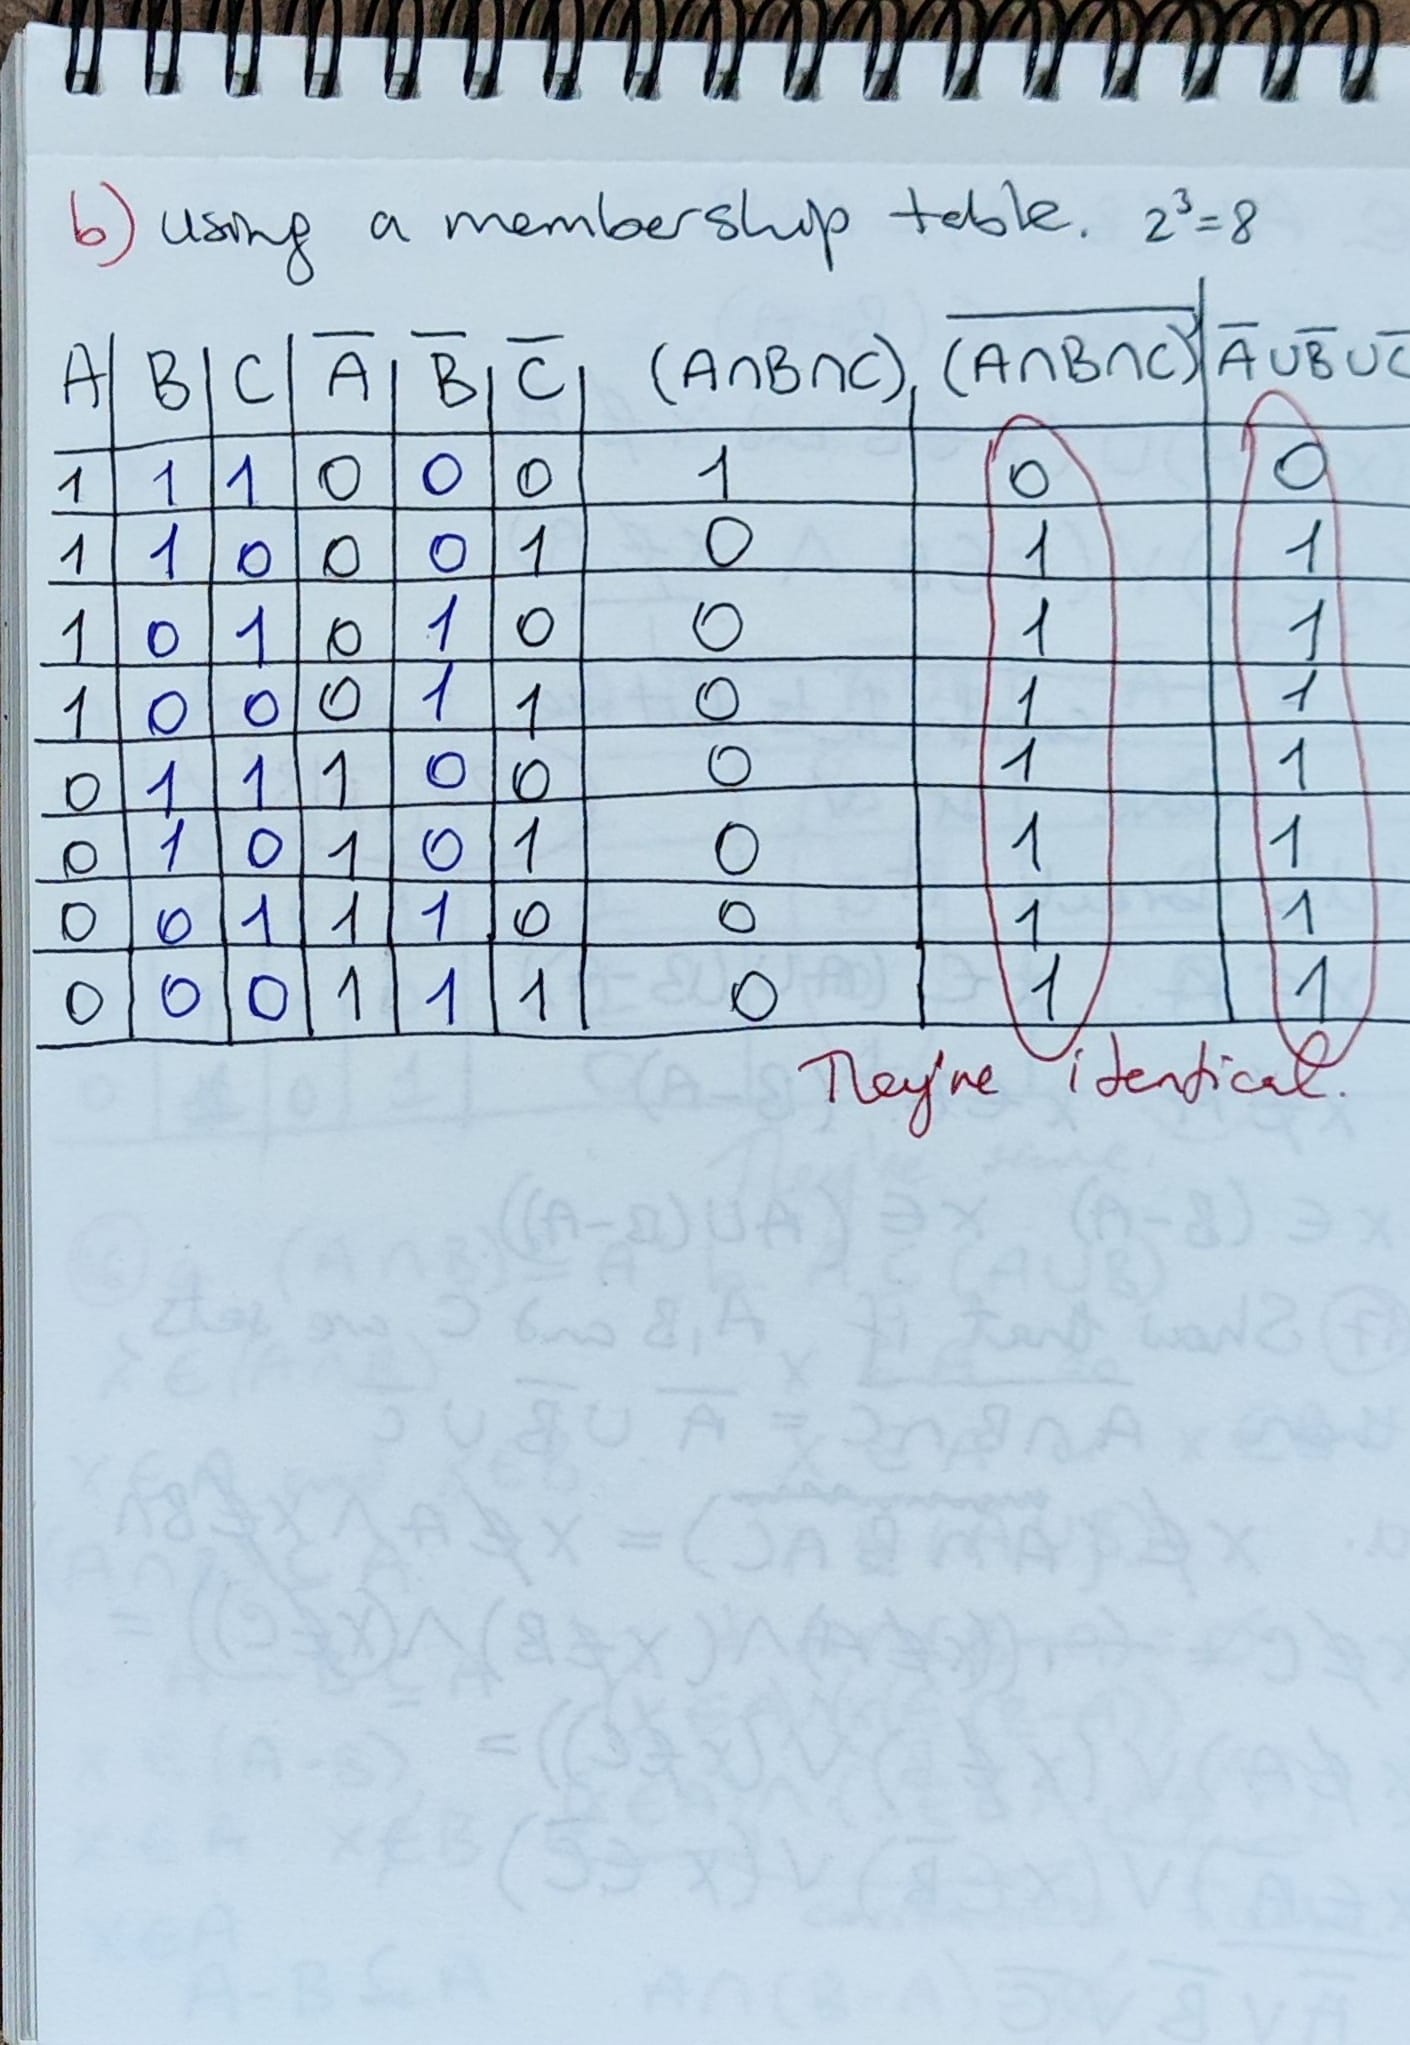 b) using a membership table. 2³=8
A | B | C | A̅ | B̅ | C̅ | (A∩B∩C) | \overline{(A∩B∩C)} | A̅∪B̅∪C̅
1 | 1 | 1 | 0 | 0 | 0 | 1 | 0 | 0
1 | 1 | 0 | 0 | 0 | 1 | 0 | 1 | 1
1 | 0 | 1 | 0 | 1 | 0 | 0 | 1 | 1
1 | 0 | 0 | 0 | 1 | 1 | 0 | 1 | 1
0 | 1 | 1 | 1 | 0 | 0 | 0 | 1 | 1
0 | 1 | 0 | 1 | 0 | 1 | 0 | 1 | 1
0 | 0 | 1 | 1 | 1 | 0 | 0 | 1 | 1
0 | 0 | 0 | 1 | 1 | 1 | 0 | 1 | 1
They're identical.